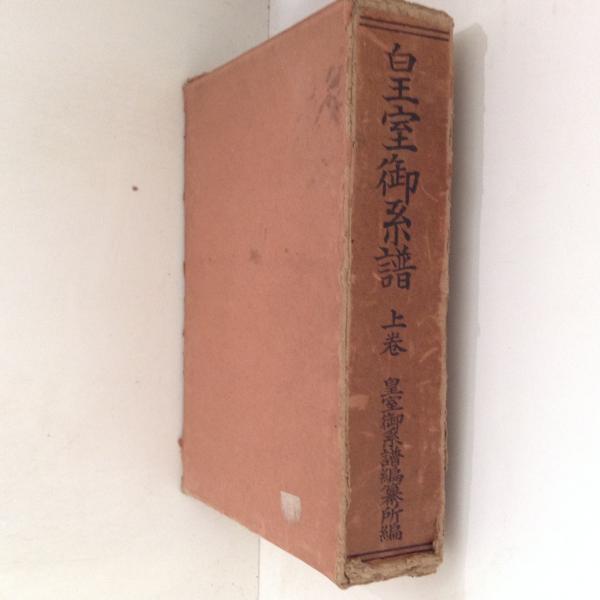 皇室御系譜
上巻
皇室御系譜編纂所編